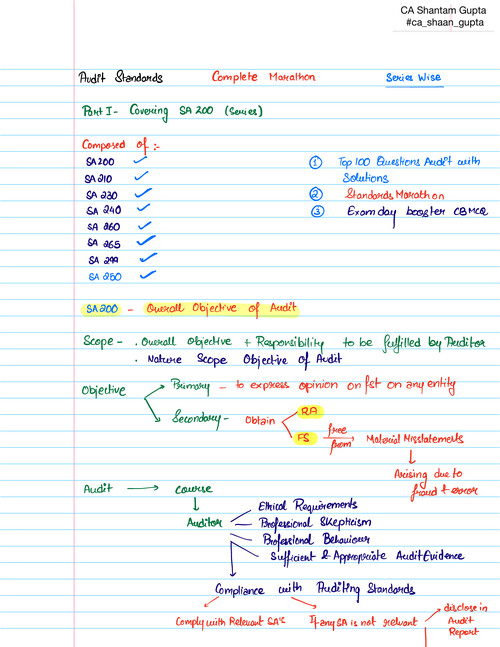 CA Shantam Gupta
#ca_shaan_gupta
Audit Standards Complete Marathon Series Wise
Part I- Covering SA 200 (Series)
Composed of :-
SA 200
SA 210
SA 230
SA 240
SA 260
SA 265
SA 299
SA 250
① Top 100 Questions Audit with
Solutions
② Standards Marathon
③ Exam day booster CBMCQ
SA 200 - Overall Objective of Audit
Scope - . Overall Objective + Responsibility to be fulfilled by Auditor
. Nature Scope Objective of Audit
Objective → Primary - to express opinion on fst on any entity
→ Secondary - Obtain RA
FS free from, Material Misstatements
Arising due to
fraud & error
Audit → course
Auditor
Ethical Requirements
Professional Skepticism
Professional Behaviour
Sufficient & Appropriate Audit Evidence
Compliance with Auditing Standards
Comply with Relevant SA'S If any SA is not relevant → disclose in
Audit
Report